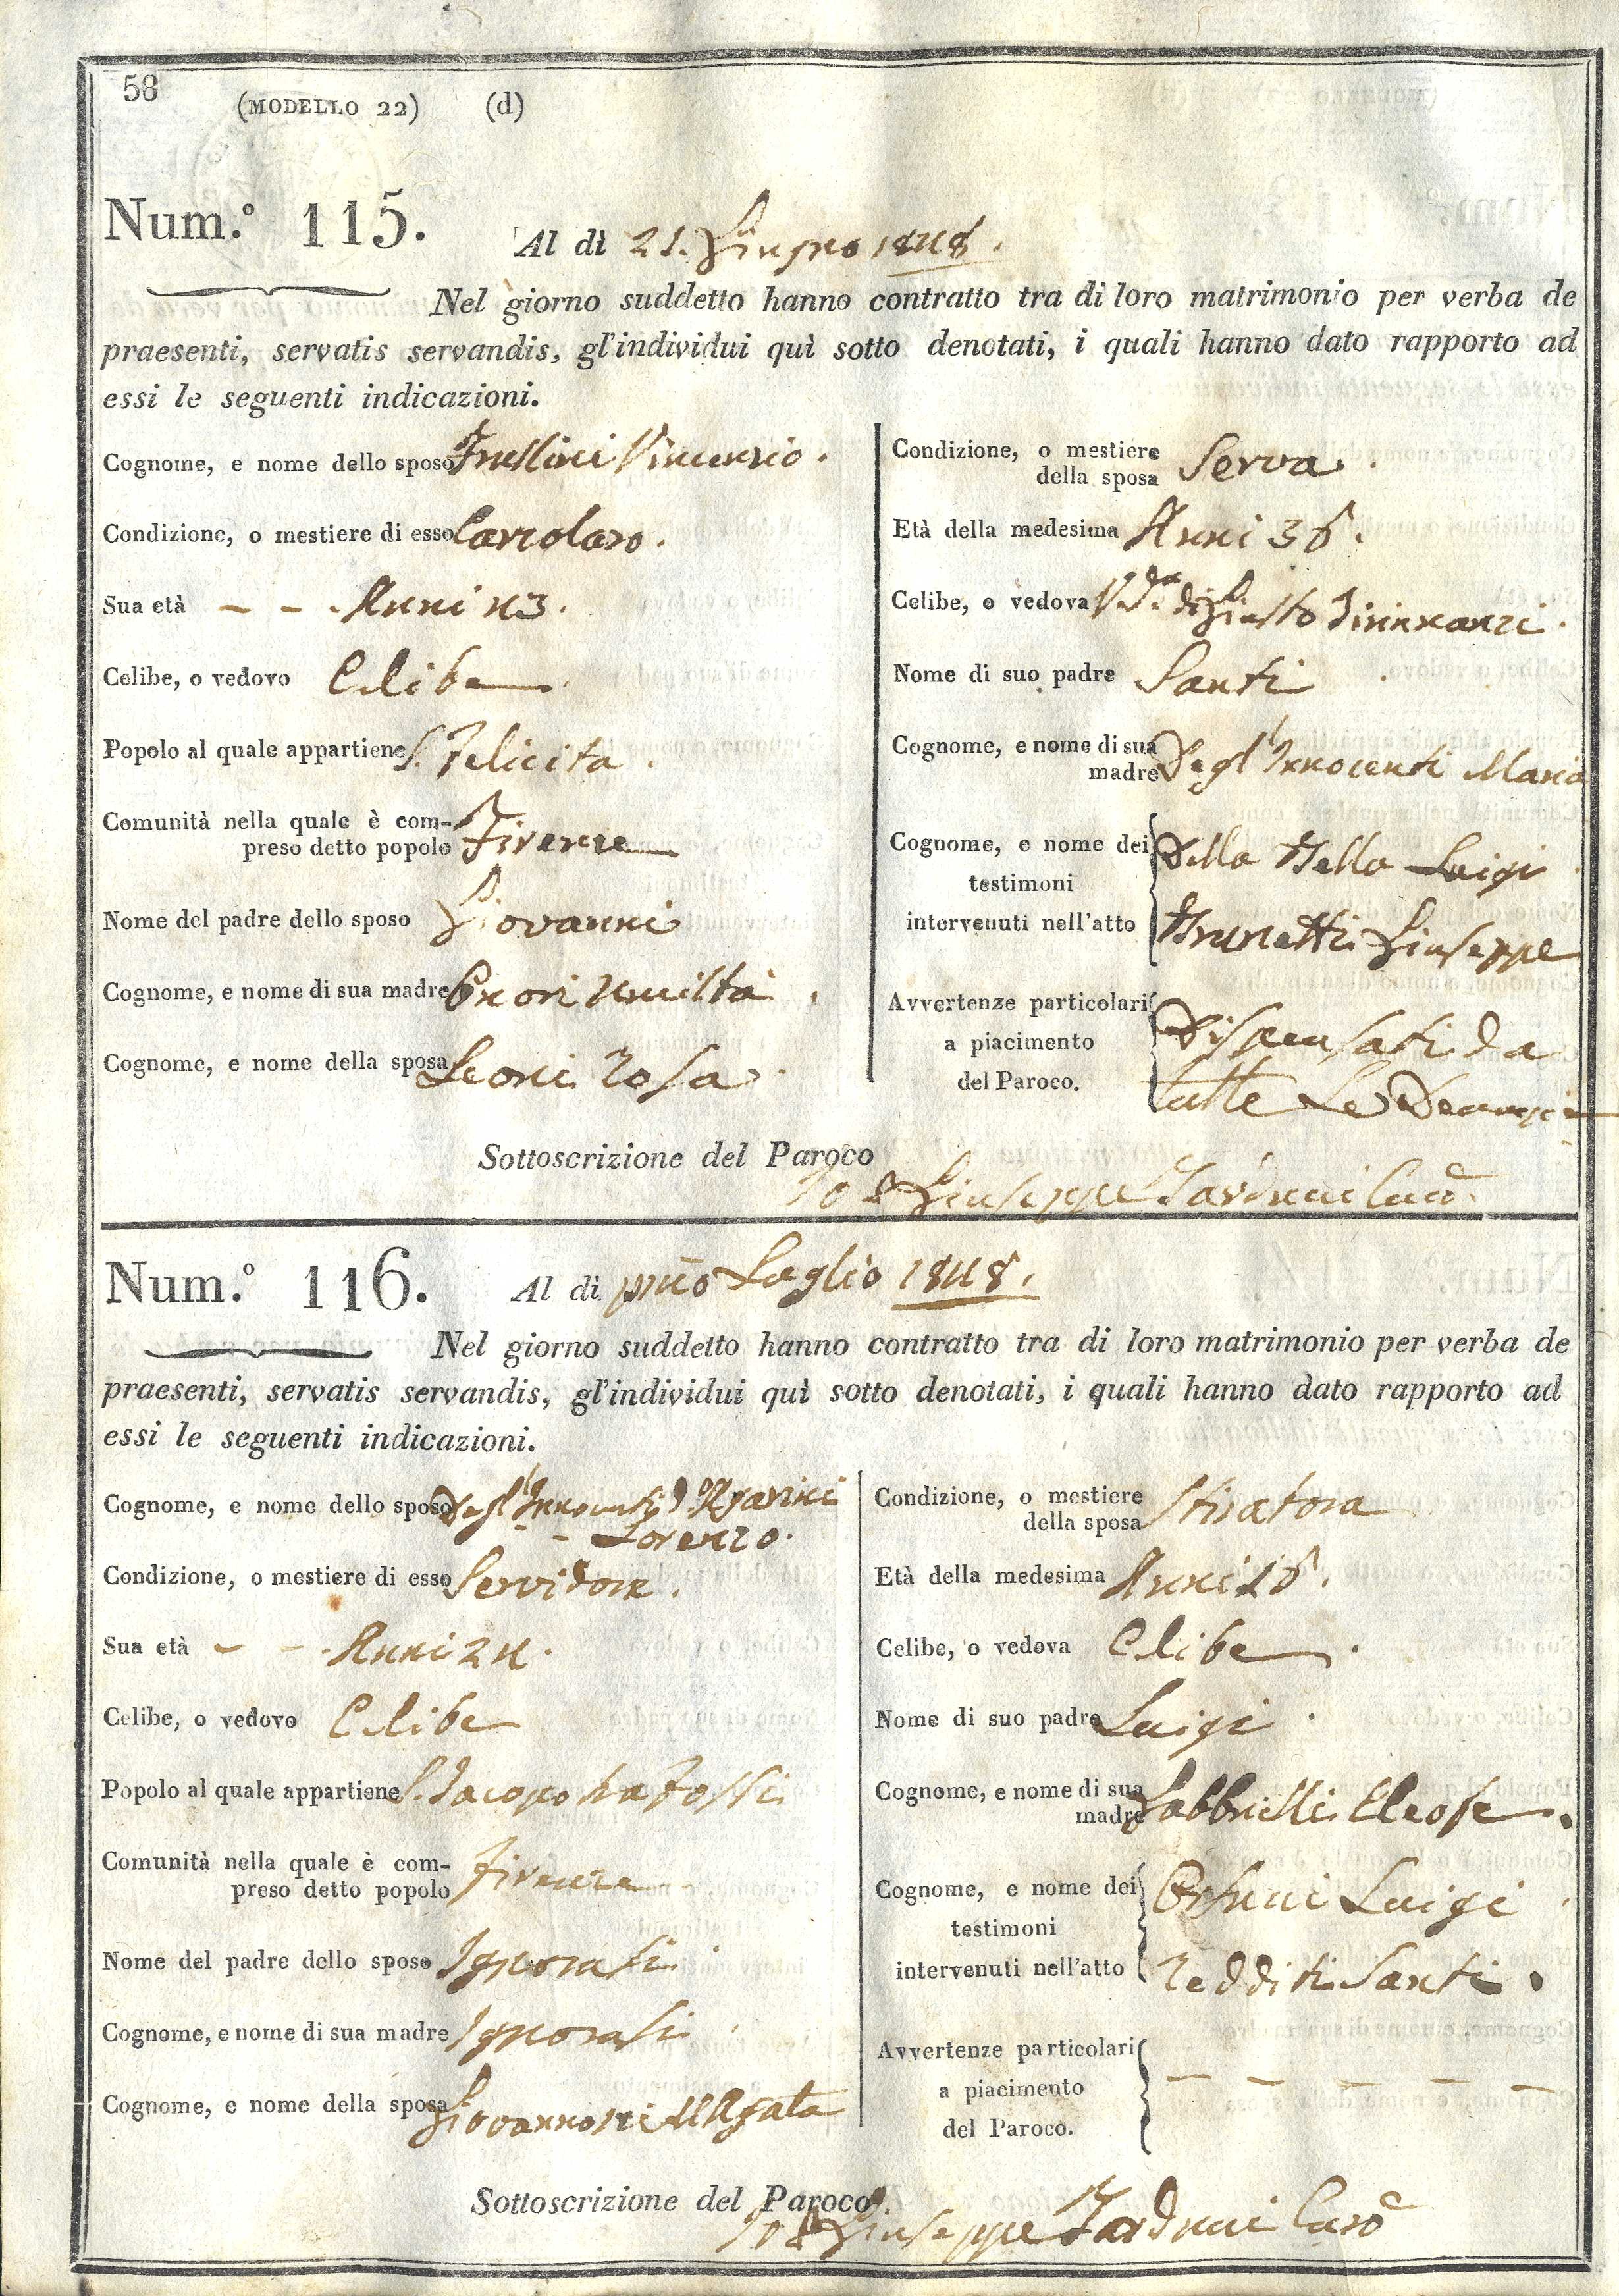 58
(MODELLO 22) (d)
Num.º 115. Al dì 21. Giugno 1848.
Nel giorno suddetto hanno contratto tra di loro matrimonio per verba de
praesenti, servatis servandis, gl'individui quì sotto denotati, i quali hanno dato rapporto ad
essi le seguenti indicazioni.
Cognome, e nome dello sposo Vincenzio.
Condizione, o mestiere di esso
Sua età - - . Anni 43.
Celibe, o vedovo Celibe
Popolo al quale appartiene S. Felicita.
Comunità nella quale è com-
preso detto popolo Firenze
Nome del padre dello sposo Giovanni
Cognome, e nome di sua madre Umiltà.
Cognome, e nome della sposa Leoni Rosa.
Condizione, o mestiere
della sposa Serva.
Età della medesima Anni 36.
Celibe, o vedova V.da di Giusto Dirinnanzi.
Nome di suo padre Santi
Cognome, e nome di sua
madre Degl'Innocenti Maria
Cognome, e nome dei
testimoni
intervenuti nell'atto
Della Bella Luigi
Brunetti Giuseppe
Avvertenze particolari
a piacimento
del Paroco.
Dispensati da
tutte Le Denunzie
Sottoscrizione del Paroco
Io Giuseppe
Num.º 116. Al dì pmo Luglio 1848.
Nel giorno suddetto hanno contratto tra di loro matrimonio per verba de
praesenti, servatis servandis, gl'individui quì sotto denotati, i quali hanno dato rapporto ad
essi le seguenti indicazioni.
Cognome, e nome dello sposo Degl'Innocenti
Lorenzo.
Condizione, o mestiere di esso Servidore.
Sua età - - . Anni 24.
Celibe, o vedovo Celibe
Popolo al quale appartiene S. Iacopo tra Fossi
Comunità nella quale è com-
preso detto popolo Firenze
Nome del padre dello sposo Ignorasi
Cognome, e nome di sua madre Ignorasi
Cognome, e nome della sposa Giovannozzi M Agata
Condizione, o mestiere
della sposa Stiratora
Età della medesima Anni
Celibe, o vedova Celibe.
Nome di suo padre Luigi
Cognome, e nome di sua
madre Gabbrielli Eleose.
Cognome, e nome dei
testimoni
intervenuti nell'atto
Luigi
Redditi Santi.
Avvertenze particolari
a piacimento
del Paroco.
- - - - -
Sottoscrizione del Paroco
Io Giuseppe